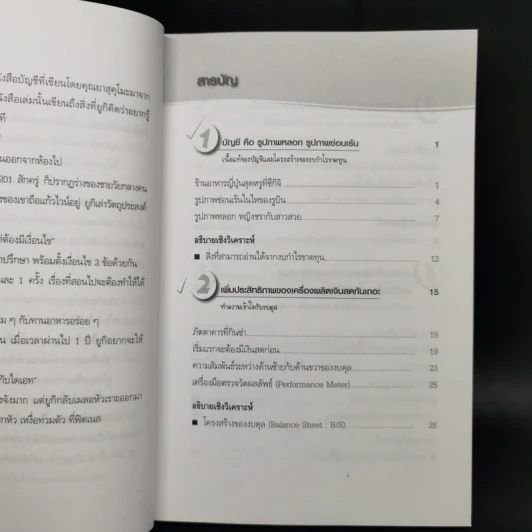 งสือบัญชีที่เขียนโดยคุณยาสุคุโมะมาจาก
งสือเล่มนั้นเขียนถึงสิ่งที่ยูกิคิดว่าอยากรู้
ที
นออกจากห้องไป
201 สักครู่ ก็ปรากฏร่างของชายวัยกลางคน
งของเขาถือแก้วไวน์อยู่ ยูกิเล่าวัตถุประสงค์
ต้องมีเงื่อนไข"
าปรึกษา พร้อมตั้งเงื่อนไข 3 ข้อด้วยกัน
นละ 1 ครั้ง เรื่องที่สอนไปจะต้องทำให้ได้
ม ๆ กับทานอาหารอร่อย ๆ
น เมื่อเวลาผ่านไป 1 ปี ยูกิอยากจะให้
กับไดเอท"
งจังมาก แต่ยูกิกลับเผลอหัวเราะออกมา
กหัว เหงื่อท่วมตัว ที่ฟิตเนส
สารบัญ
1 บัญชี คือ รูปภาพหลอก รูปภาพซ่อนเร้น 1
เนื้อแท้ของบัญชีและโครงสร้างของงบกำไรขาดทุน
ร้านอาหารญี่ปุ่นสุดหรูที่ชิกิจิ 1
รูปภาพซ่อนเร้นในไหของรูบิน 4
รูปภาพหลอก หญิงชรากับสาวสวย 7
อธิบายเชิงวิเคราะห์
■ สิ่งที่สามารถอ่านได้จากงบกำไรขาดทุน 12
2 เพิ่มประสิทธิภาพของเครื่องผลิตเงินสดกันเถอะ 15
ทำความเข้าใจกับงบดุล
ภัตตาคารที่กินซ่า 15
เริ่มแรกจะต้องมีเงินสดก่อน 19
ความสัมพันธ์ระหว่างด้านซ้ายกับด้านขวาของงบดุล 23
เครื่องมือตรวจวัดผลลัพธ์ (Performance Meter) 25
อธิบายเชิงวิเคราะห์
■ โครงสร้างของงบดุล (Balance Sheet : B/S) 26